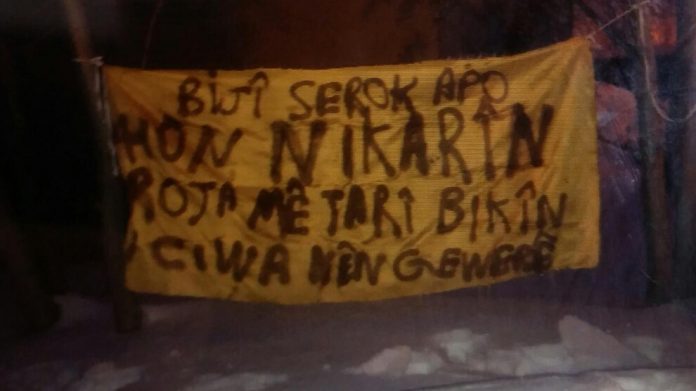 BIJÎ SEROK APO
HON NIKARÎN
ROJA MÊ TARÎ BIKÎN
CIWANÊN GEWERÊ